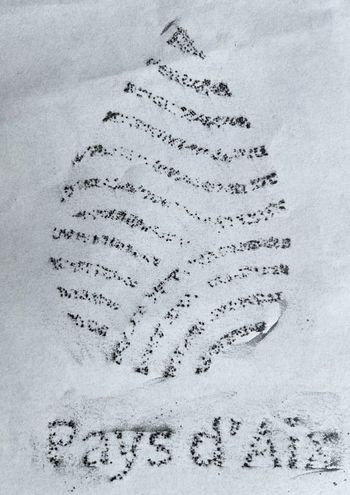 Pays d'Aix